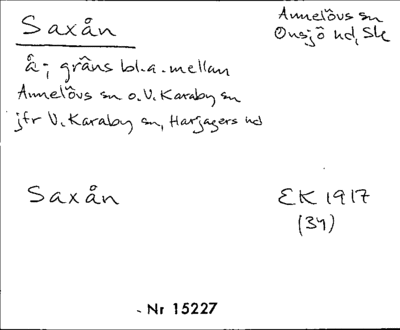 Saxån
Annelövs sn
Onsjö hd, Sk
å; gräns bl.a. mellan
Annelövs sn o. V. Karaby sn
jfr V. Karaby sn, Harjagers hd
Saxån
EK 1917
(34)
- Nr 15227